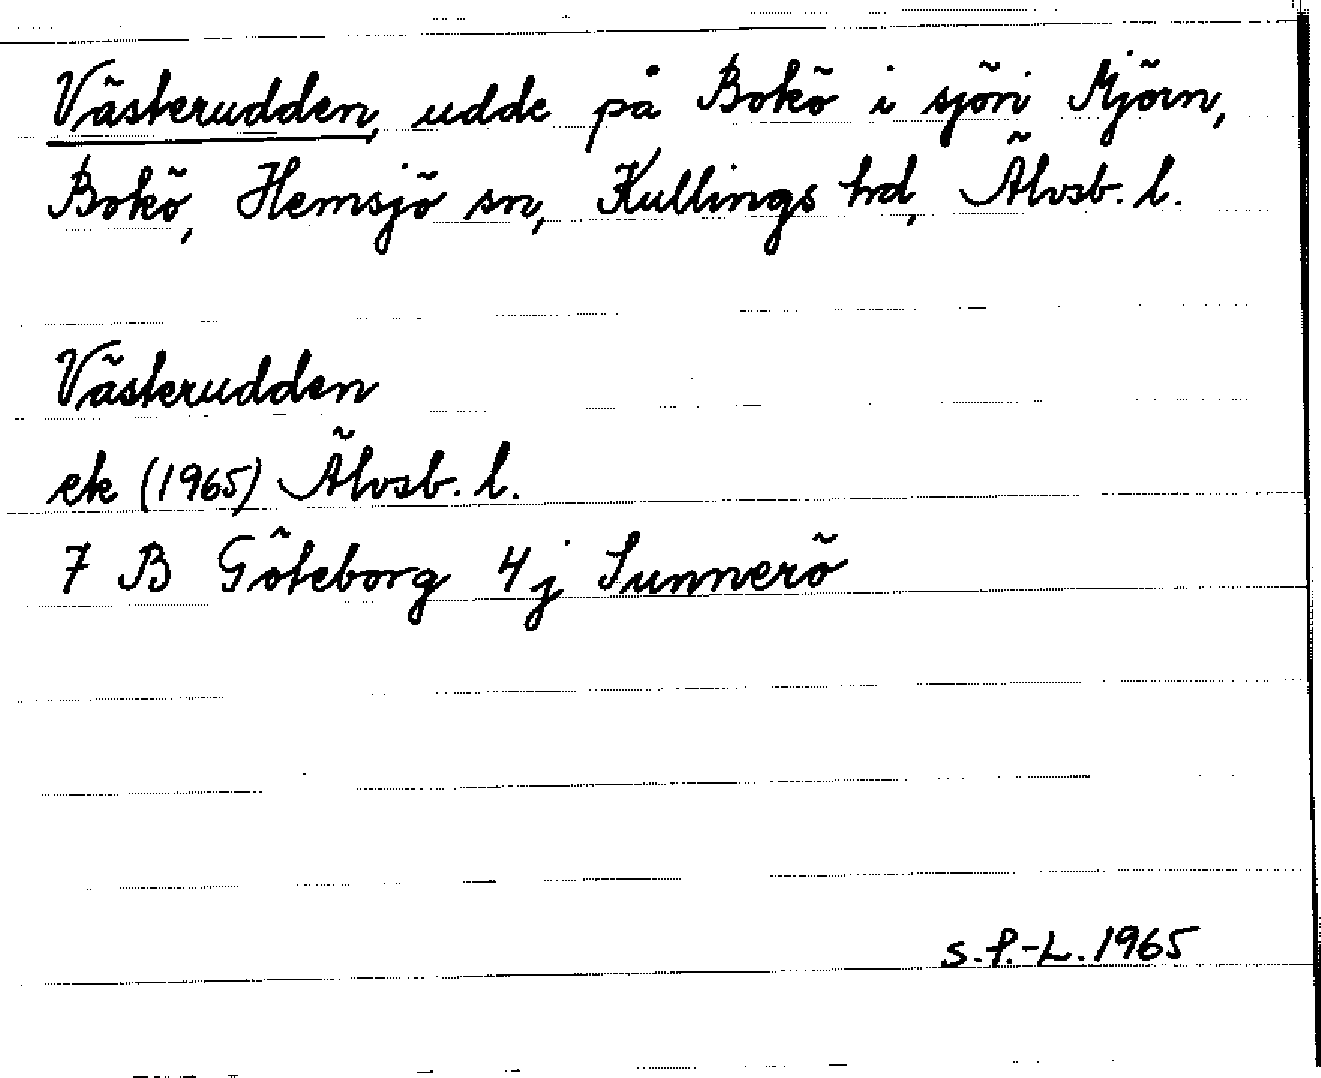 Västerudden, udde på Bokö i sjön Mjörn,
Bokö, Hemsjö sn, Kullings hd, Älvsb. l.
Västerudden
ek (1965) Älvsb. l.
7 B Göteborg 4j Sunnerö
S.P.-L. 1965